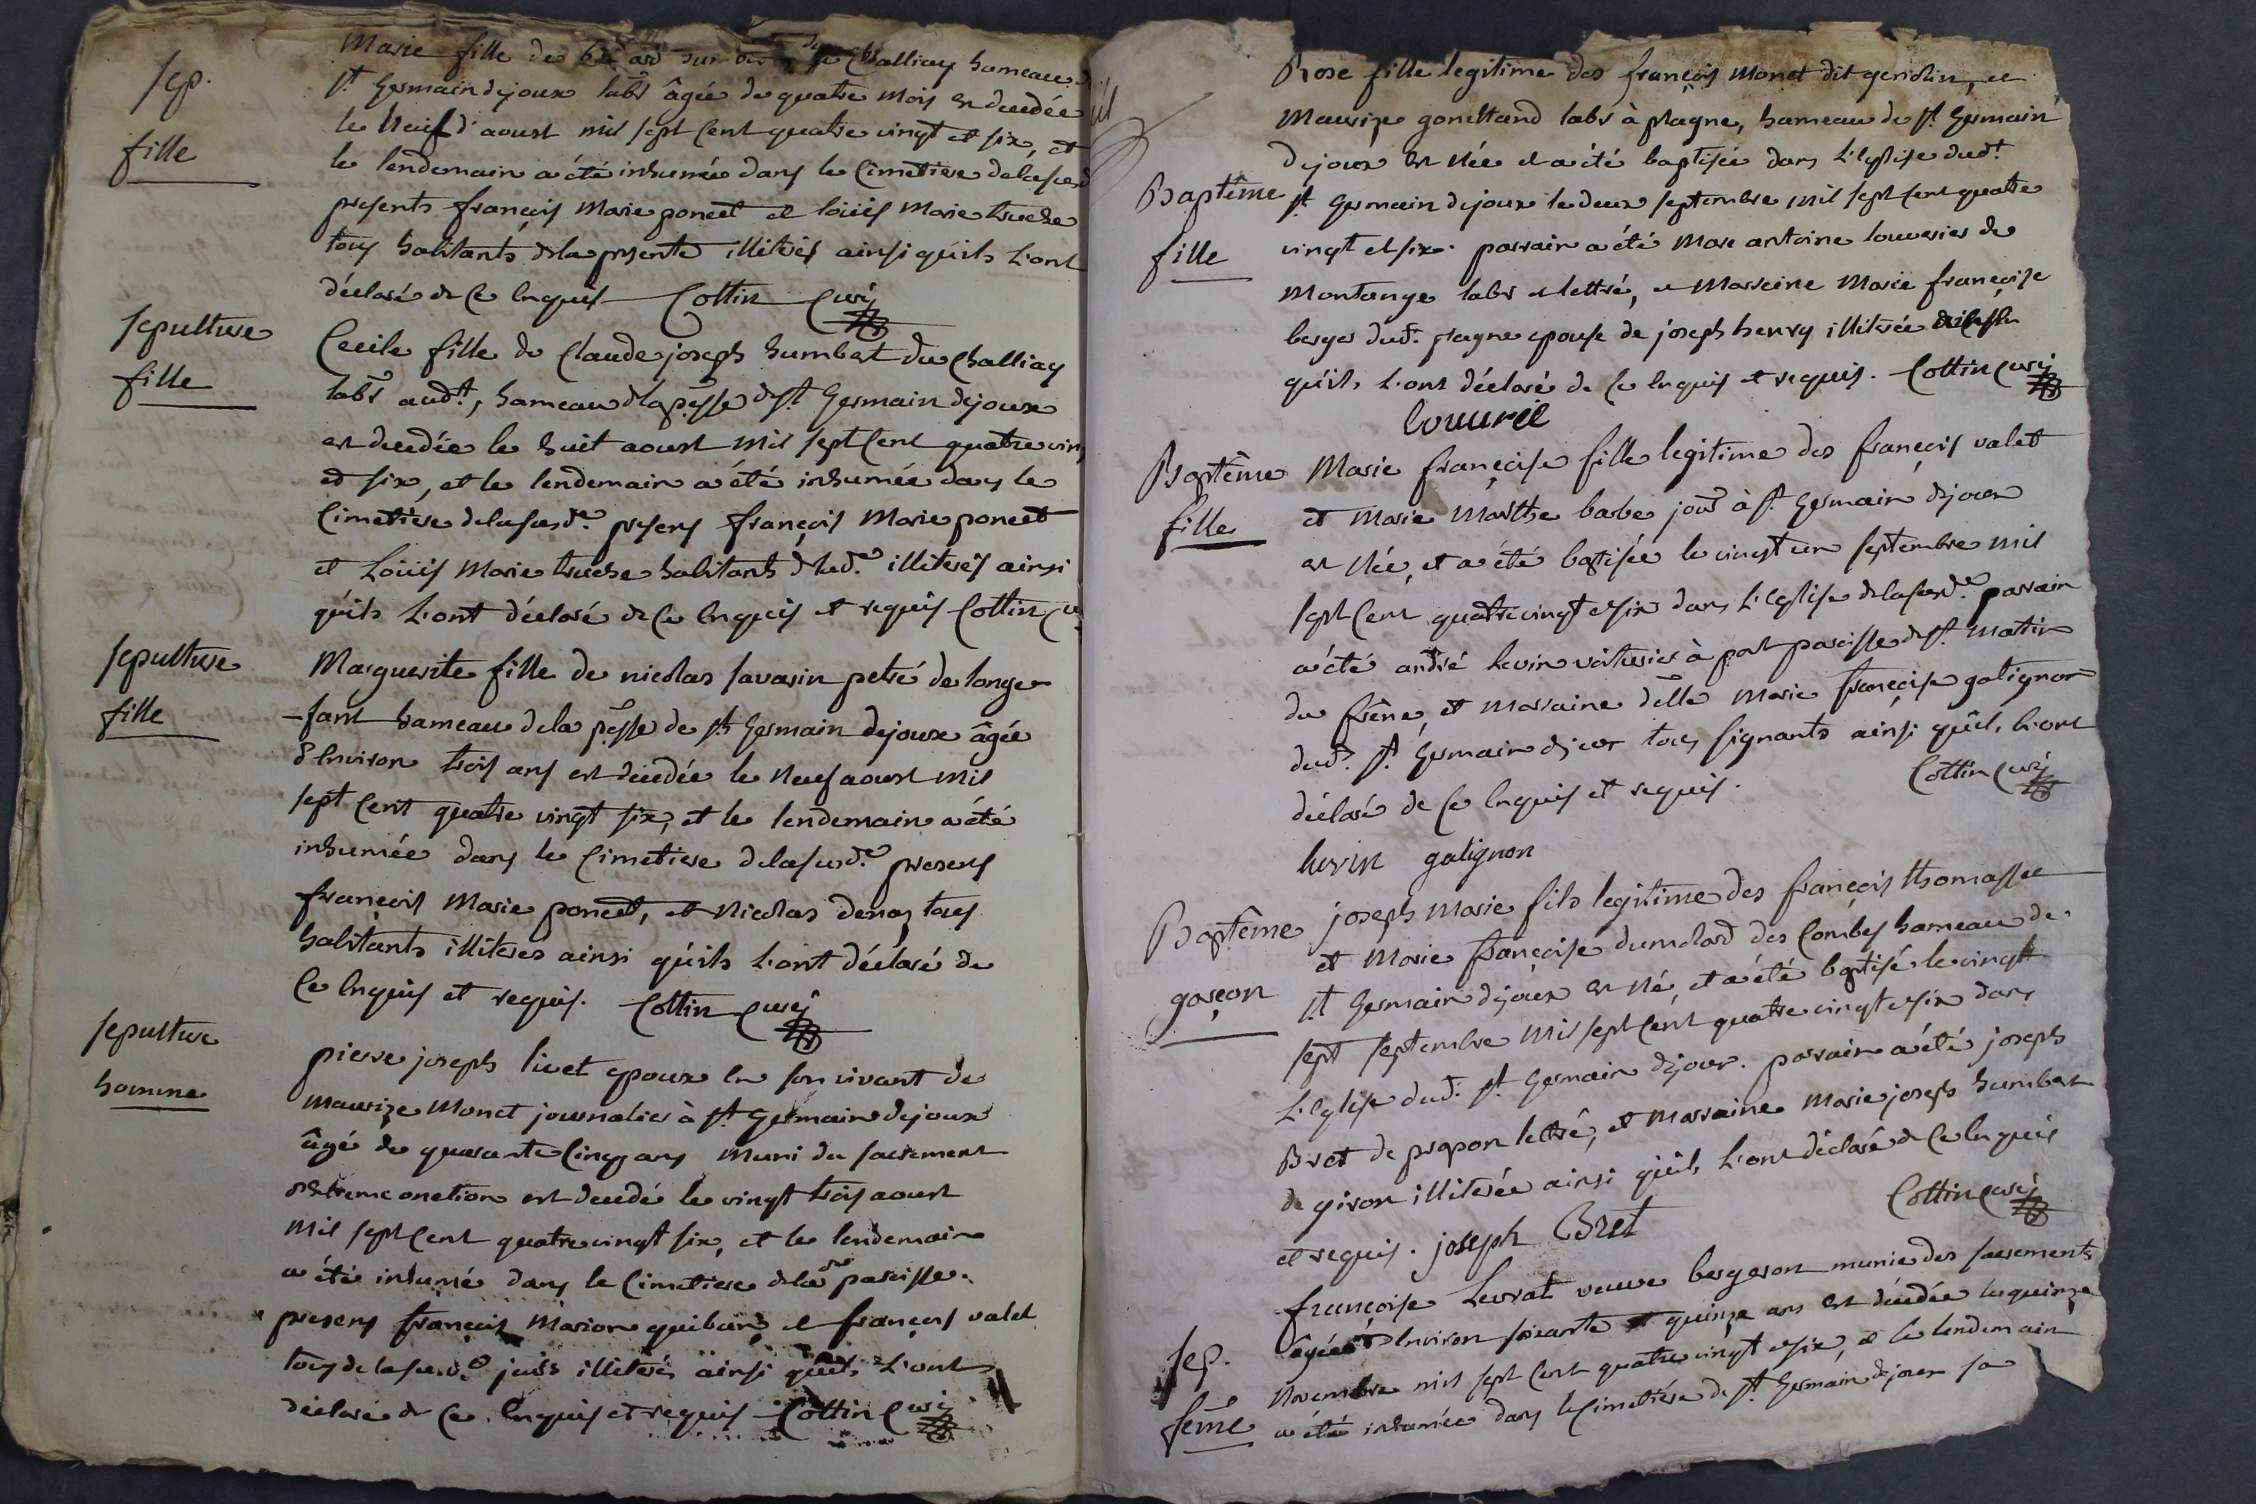 sep.
fille
Marie fille de du Challiay hameau
st Germain dejoux labr âgée de quatre mois est decédée
le neuf d'aoust mil sept cent quatre vingt et six, et
le lendemain a été inhumée dans le Cimetiere delasusd
presents françois Marie poncet et loüis Marie truche
tous habitants dela presente illiterés ainsi qu'ils l'ont
déclaré de ce enquis Cottin Curé
sepulture
fille
Cecile fille de Claude joseph humbert du Challiay
labr audt, hameau dlapsse dst Germain dejoux
est decedée le huit aoust mil sept Cent quatre vin
et six, et le lendemain a été inhumée dans le
Cimetiere delasusde. presens françois Marie poncet
et Loüis Marie truche habitants dladde illiterés ainsi
qu'ils l'ont déclaré de ce enquis et requis Cottin C
sepulture
fille
Marguerite fille de nicolas savarin petré de longe
-fant hameau dela psse de st Germain dejoux âgée
d'Environ trois ans est décédée le Neuf aoust mil
sept Cent quatre vingt six, et le lendemain a été
inhumée dans le Cimetiere delasusde. presens
françois Marie poncet, et Nicolas denaz tous
habitants illiteres ainsi qu'ils l'ont déclaré de
Ce Enquis et requis. Cottin Curé
sepulture
homme
pierre joseph livet epoux En son vivant de
maurize Monet journalier à st Germain dejoux
âgé de quarante Cinq ans muni du sacrement
extreme onction est decedé le vingt trois aoust
mil sept Cent quatre vingt six, et le lendemain
a été inhumé dans le Cimetiere dlade paroisse.
presens françois Marion et françois valet
tous de lasusde illiterés ainsi qu'ils l'ont
déclaré de Ce Enquis et requis Cottin Curé
Baptême
fille
Rose fille legitime des françois Monet dit genolin, et
Maurize gonettand labr à plagne, hameau de st Germain
dejoux est née et a été baptisée dans L'Eglise dudt
st Germain dejoux le deux septembre mil sept Cent quatre
vingt et six. parrain a été Marc antoine louverier de
Montange labr et lettré, et Marreine Marie françoise
berger dudt plagne epouse de joseph henry illiterée
qu'ils l'ont déclaré de Ce Enquis et requis. Cottin Curé
Baptême
fille
Marie françoise fille legitime des françois valet
et Marie Marthe barbe jour à st Germain dejoux
est Née, et a été baptisée le vingt un septembre mil
sept Cent quatre vingt et six dans L'Eglise delasusde. parrain
a été andré levrin voiturier à port paroisse dst Martin
du frêne, et Marraine delle Marie françoise galignon
dudt st Germain dejoux tous signants ainsi qu'ils l'ont
déclaré de Ce Enquis et requis. Cottin Curé
galignon
Baptême
garçon
joseph Marie fils legitime des françois thomasset
et Marie françoise dumolard des Combes hameau de
st Germain dejoux est Né, et a été baptisé le vingt
sept septembre mil sept Cent quatre vingt et six dans
L'Eglise dudt st Germain dejoux. parrain a été joseph
Bret de prapon lettré, et Marraine Marie joseph humbert
de giron illiterée ainsi qu'ils l'ont déclaré de Ce Enquis
et requis. joseph Bret Cottin Curé
sep.
feme
françoise Levrat veuve bergeron munie des sacrements
âgée d'Environ soixante et quinze ans est décédée le quinze
Novembre mil sept Cent quatre vingt et six, et le lendemain
a été inhumée dans le Cimetière de st Germain dejoux sa